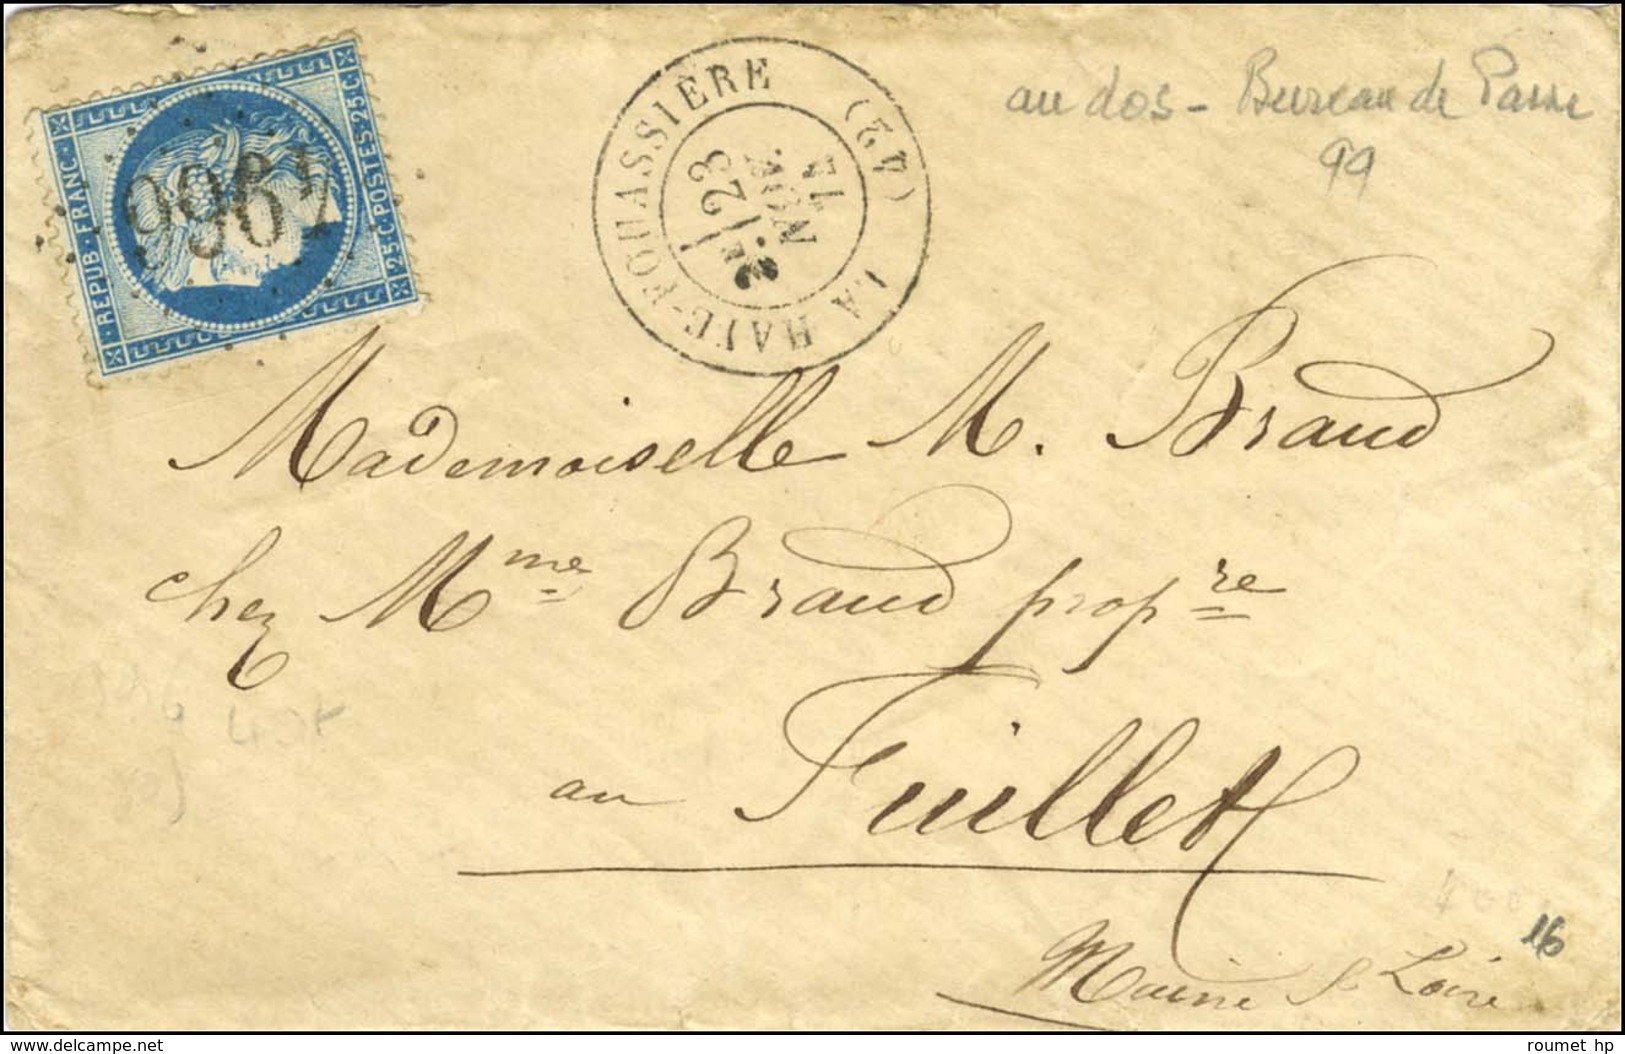 REPUB·FRANC·
25C·POSTES·25C
LA HAIE-FOUASSIÈRE (42)
2E/23
NOV.
74
au dos - Bureau de Passe
99
Mademoiselle M. Braud
chez Mme Braud propre
au Fuillet
Maine & Loire
16
roumet hp